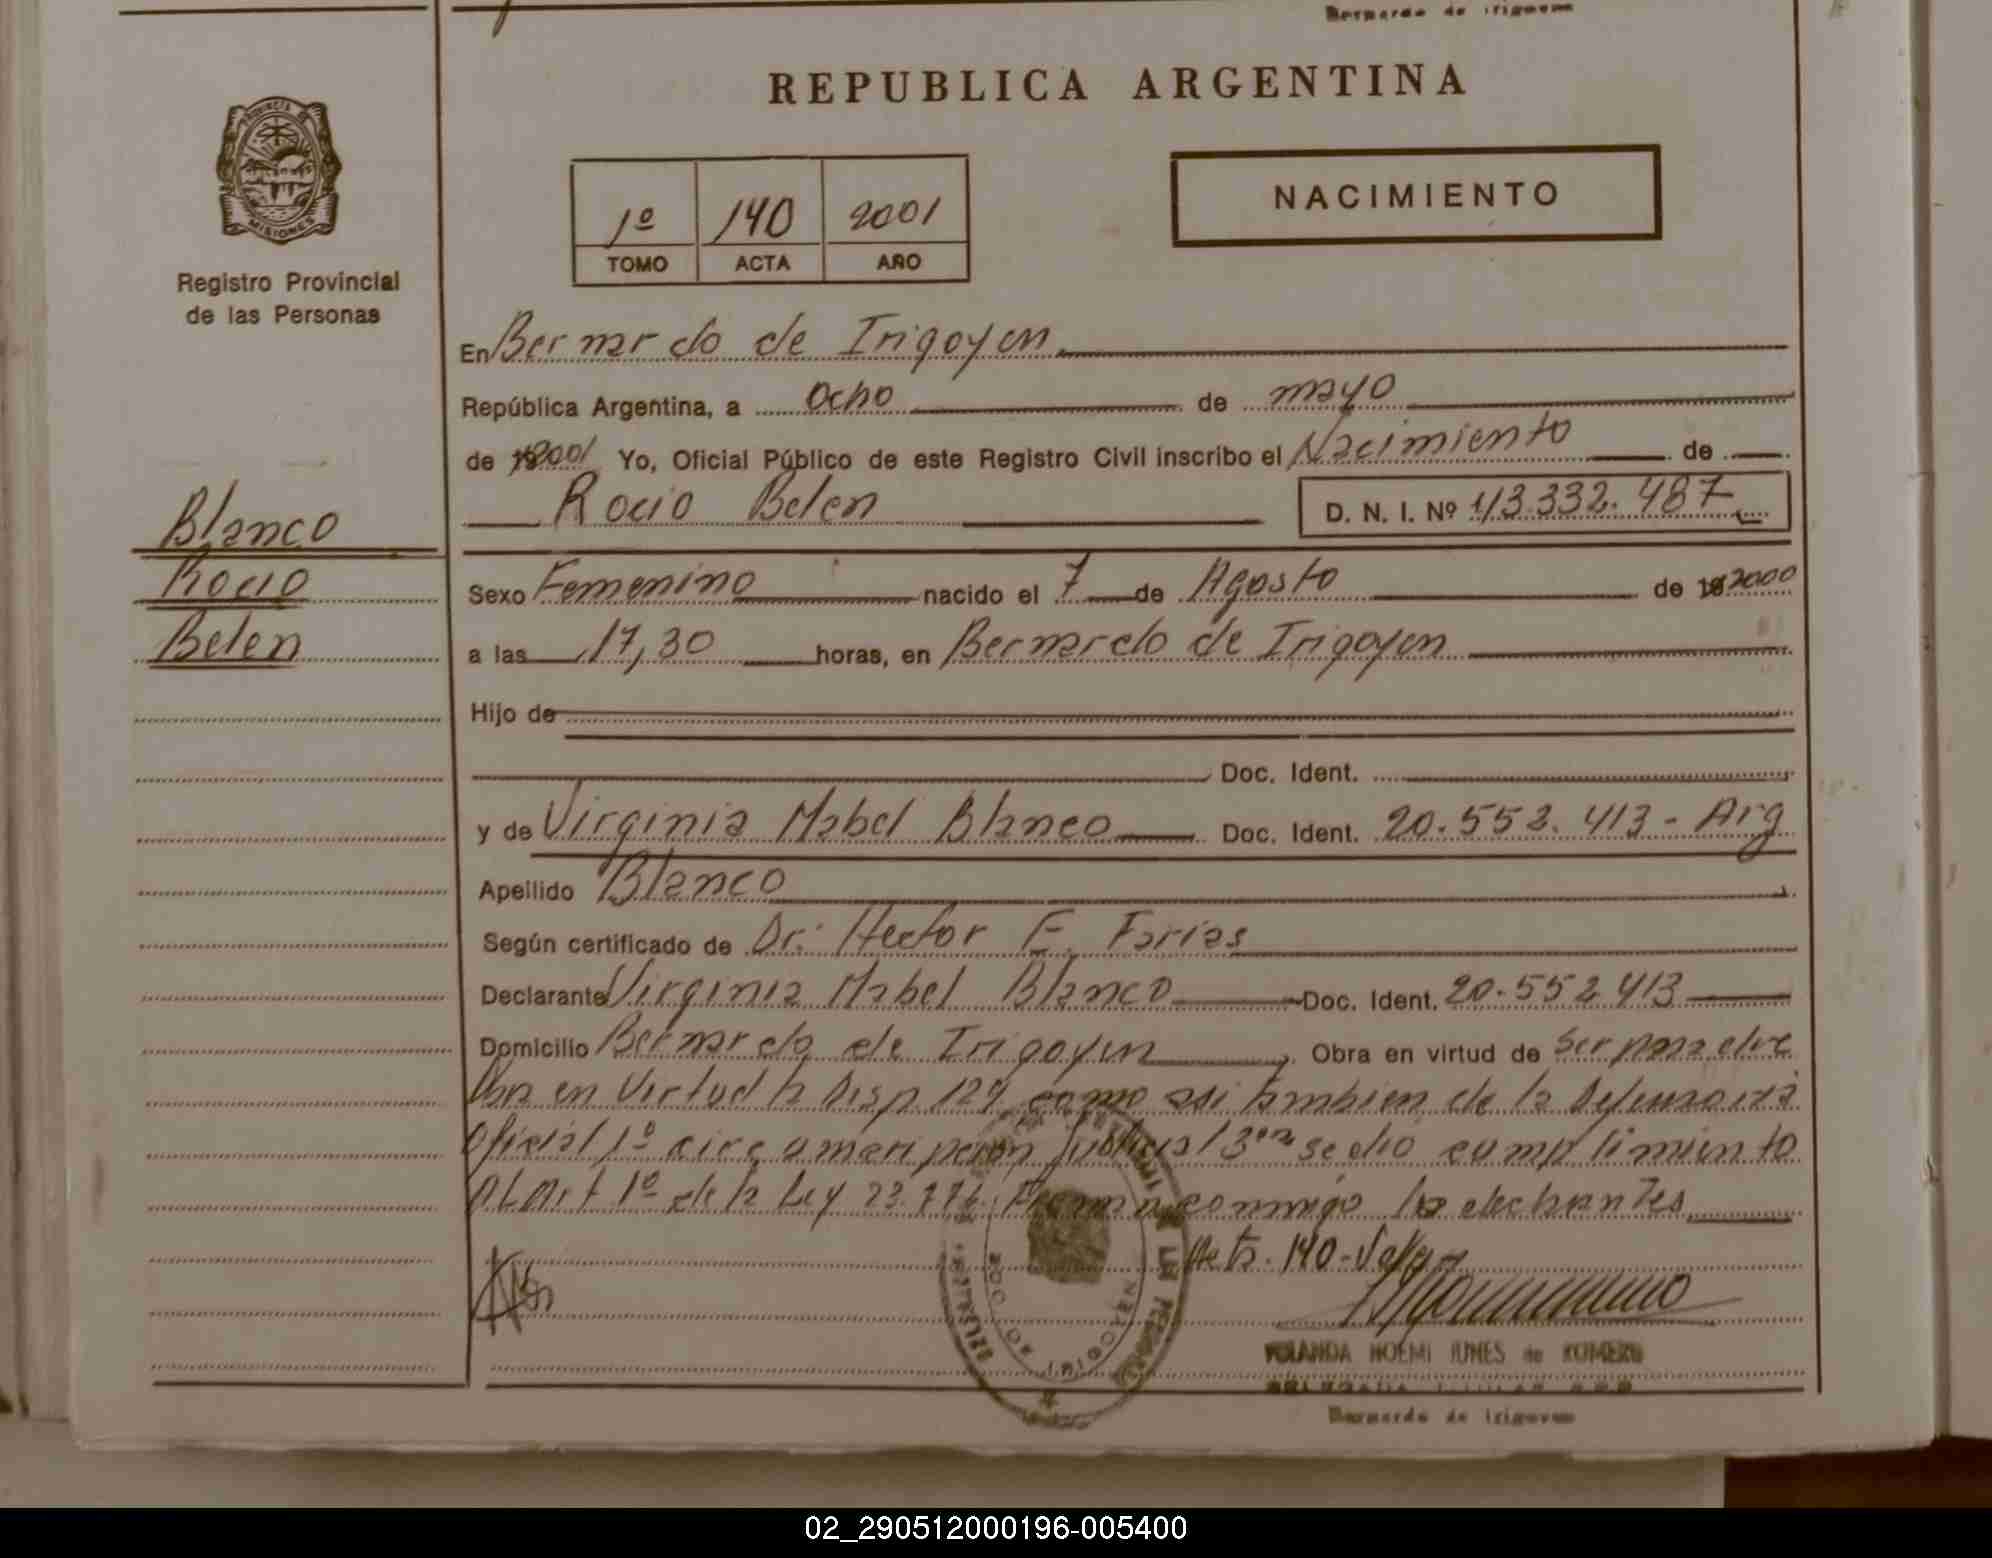 Bernardo de Irigoyen
REPUBLICA ARGENTINA
PROVINCIA DE
MISIONES
Registro Provincial
de las Personas
1º 140 2001
TOMO ACTA AÑO
NACIMIENTO
En Bernardo de Irigoyen
República Argentina, a Ocho de mayo
de 2001 Yo, Oficial Público de este Registro Civil inscribo el Nacimiento de
Rocio Belen D. N. I. Nº 43.332.487
Blanco
Rocio
Belen
Sexo Femenino nacido el 7 de Agosto de 2000
a las 17,30 horas, en Bernardo de Irigoyen
Hijo de
Doc. Ident.
y de Virginia Mabel Blanco Doc. Ident. 20.552.413 - Arg
Apellido Blanco
Según certificado de Dr. Hector E. Farias
Declarante Virginia Mabel Blanco Doc. Ident. 20.552.413
Domicilio Bernardo de Irigoyen Obra en virtud de ser madre
Obra en Virtud la Disp 129 como asi tambien de la Defensoria
Oficial 1º circunscripcion Judicial 3era se dio cumplimiento
Al Art 1º de la Ley 23.776. Firma conmigo la declarantes
Acta. 140 - Vale
YOLANDA NOEMI IUNES de ROMERO
Bernardo de Irigoyen
02_290512000196-005400